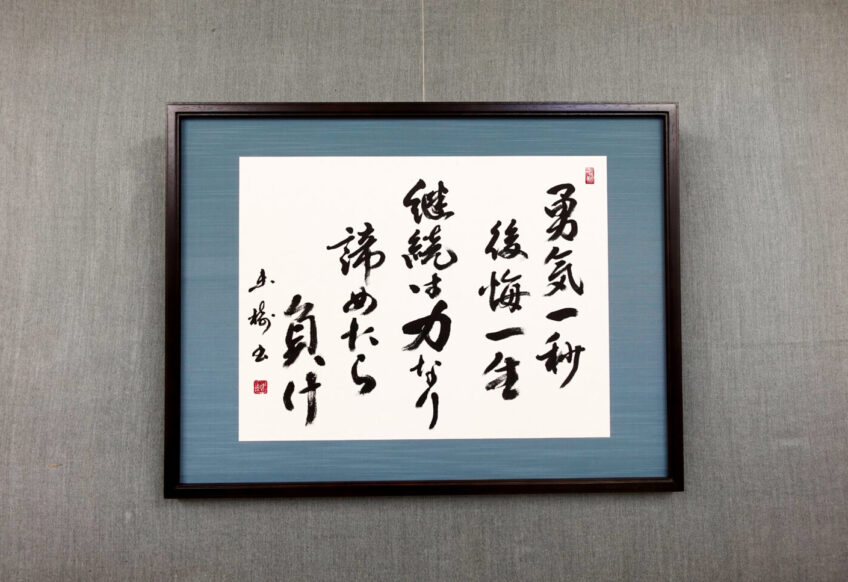 勇気一秒
後悔一生
継続は力なり
諦めたら
負け